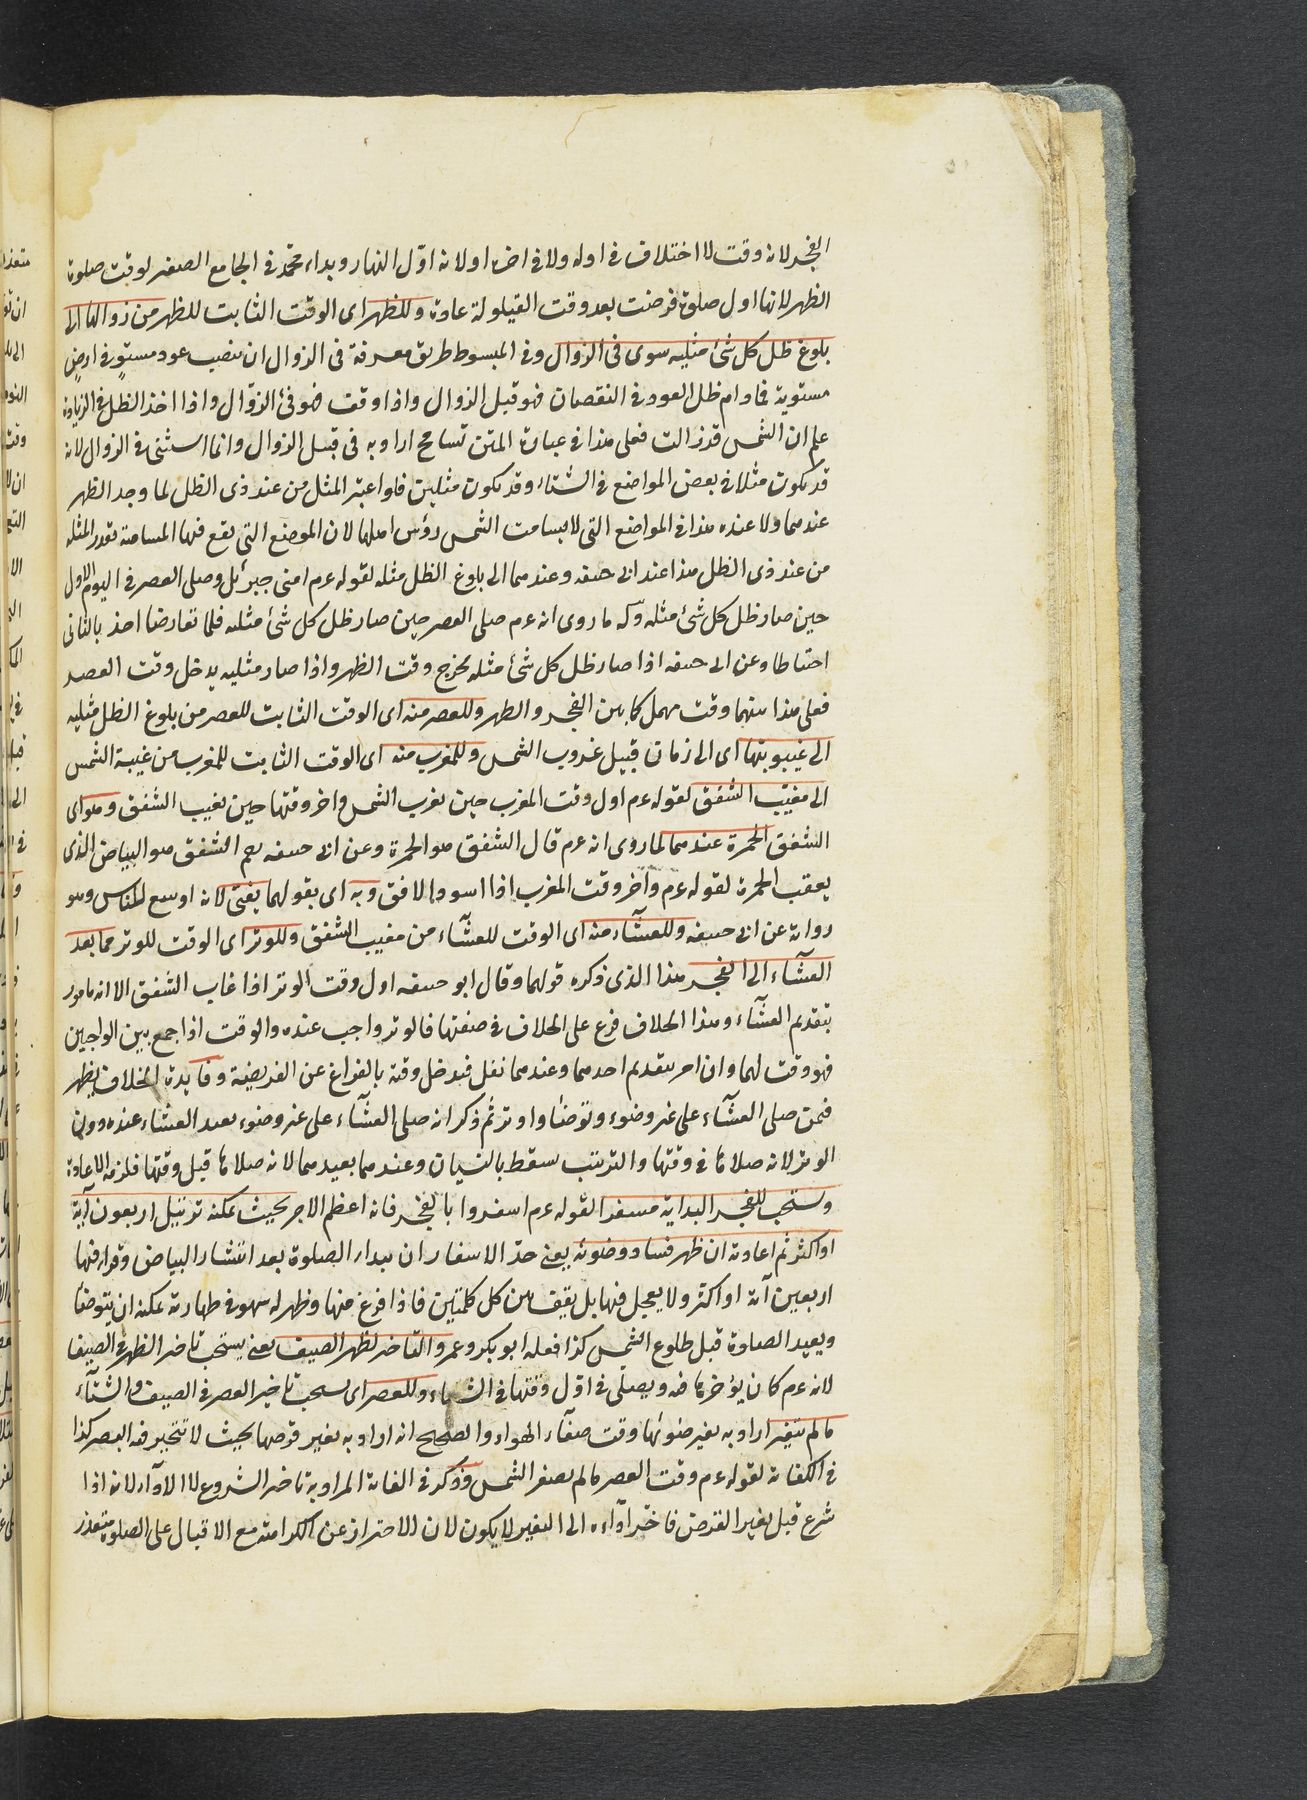 الفجر لانه وقت لا اختلاف فى اوله ولا فى اخره او لانه اوّل النهار وبداء محمّد فى الجامع الصغير لوقت صلوة
الظهر لانها اول صلوة فرضت بعد وقت القيلولة عادة وللظهر اى الوقت الثابت للظهر من زوالها الى
بلوغ ظل كل شئ مثليه سوى فئ الزوال وفى المبسوط طريق معرفة فئ الزوال ان ينصب عود مستوٍ فى ارضٍ
مستوية فما دام ظل العود فى النقصان فهو قبل الزوال واذا وقف فهو فئ الزوال واذا اخذ الظل فى الزيادة
علم ان الشمس قد زالت فعلى هذا فى عبارة المتن تسامح اراد به فئ قبيل الزوال وانما استثنى فئ الزوال لانه
قد يكون مثلا فى بعض المواضع فى الشتاء وقد يكون مثلين فلو اعتبر المثل من عند ذى الظل لما وجد الظهر
عندهما ولا عنده هذا فى المواضع التى لا يسامت الشمس رؤس اهلها لان الموضع التى يقع فيها المسامتة يقدر المثله
من عند ذى الظل هذا عند ابى حنيفه وعندهما الى بلوغ الظل مثله لقوله عم امنى جبرئيل وصلى العصر فى اليوم الاول
حين صار ظل كل شئ مثله وله ما روى انه عم صلى العصر حين صار ظل كل شئ مثليه فلما تعارضا اخذ بالثانى
احتياطا وعن ابى حنيفه اذا صار ظل كل شئ مثله يخرج وقت الظهر واذا صار مثليه يدخل وقت العصر
فعلى هذا بينهما وقت مهمل كما بين الفجر والظهر وللعصر منه اى الوقت الثابت للعصر من بلوغ الظل مثليه
الى غيبوبتها اى الى زمان قبيل غروب الشمس وللمغرب منه اى الوقت الثابت للمغرب من غيبة الشمس
الى مغيب الشفق لقوله عم اول وقت المغرب حين تغرب الشمس واخر وقتها حين يغيب الشفق وهو اى
الشفق الحمرة عندهما لما روى انه عم قال الشفق هو الحمرة وعن ابى حنيفه رحم الشفق هو البياض الذى
يعقب الحمرة لقوله عم واخر وقت المغرب اذا اسود الافق وبه اى بقولهما يفتى لانه اوسع للناس وهو
رواية عن ابى حنيفه وللعشآء منه اى الوقت للعشآء من مغيب الشفق وللوتر اى الوقت للوتر مما بعد
العشآء الى الفجر هذا الذى ذكره قولهما وقال ابو حنيفه اول وقت الوتر اذا غاب الشفق الا انه مامور
بتقديم العشآء وهذا الخلاف فرع على الخلاف فى صفتها فالوتر واجب عنده والوقت اذا جمع بين الواجبين
فهو وقت لهما وان امر بتقديم احدهما وعندهما نفل فيدخل وقته بالفراغ عن الفريضة وفايدة الخلاف يظهر
فيمن صلى العشآء على غير وضوء وتوضأ واوتر ثم ذكر انه صلى العشآء على غير وضوء يعيد العشاء عنده دون
الوتر لانه صلاها فى وقتها والترتيب سقط بالنسيان وعندهما يعيدهما لانه صلاها قبل وقتها فلزمه الاعادة
ويستحب للفجر البداية مسفرا لقوله عم اسفروا بالفجر فانه اعظم الاجر بحيث يمكنه ترتيل اربعون آية
او اكثر ثم اعادته ان ظهر فساد وضوئه يعنى حدّ الاسفار ان يبداء الصلوة بعد انتشار البياض وقراء فيها
اربعين آية او اكثر ولا يعجل فيها بل يقف بين كل كلمتين فاذا فرغ منها وظهر له سهو فى طهارته يمكنه ان يتوضأ
ويعيد الصلوة قبل طلوع الشمس كذا فعله ابو بكر وعمر والتاخير لظهر الصيف يعنى يستحب تاخير الظهر فى الصيف
لانه عم كان يؤخرها فيه ويصلى فى اوّل وقتها فى الشتاء وللعصر اى يستحب تاخير العصر فى الصيف والشتآء
ما لم يتغير اراد به تغير ضوئها وقت صفآء الهواء والصحيح انه اراد به تغير قرصها بحيث لا تتحير فيه البصر كذا
فى الكفاية لقوله عم وقت العصر ما لم يصفر الشمس وذكر فى الغاية المراد به تاخير الشروع لا الاداء لانه اذا
شرع قبل تغير القرص فاخر آداءه الى التغير لا يكون لان الاحتراز عن الكراهة مع الاقبال على الصلوة متعذر